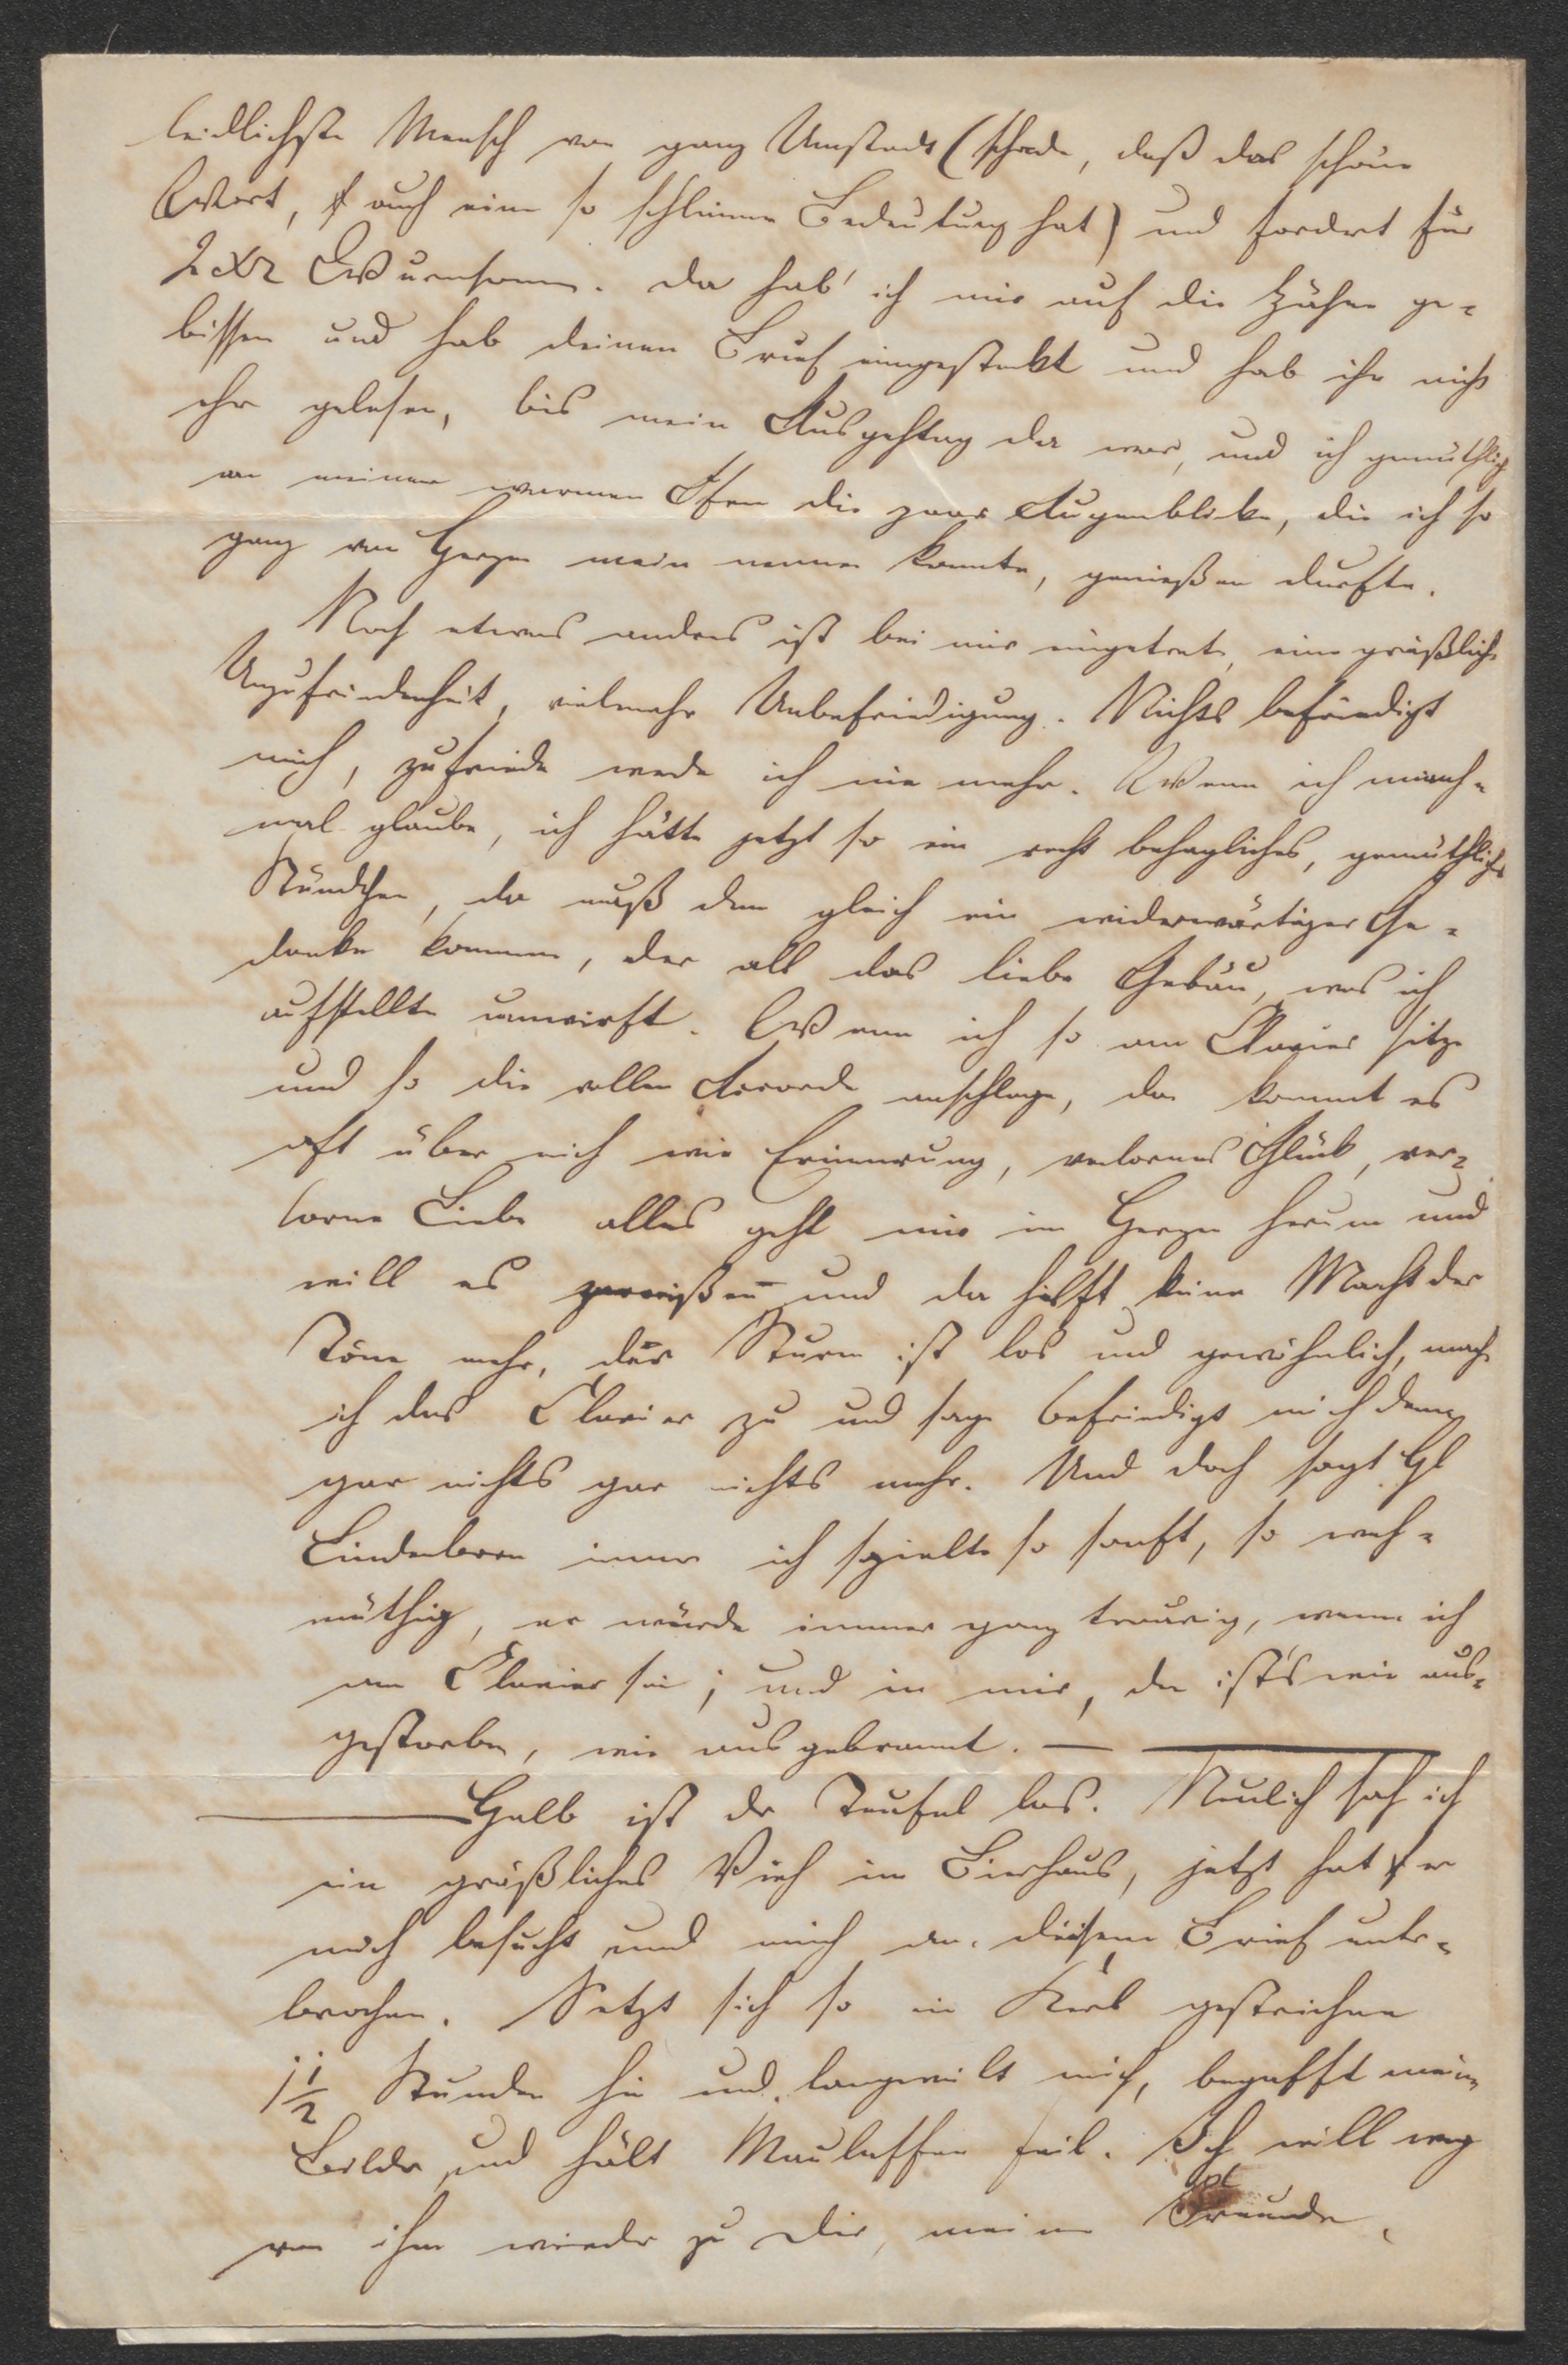 leidlichste Mensch von ganz Umstadt (schade, daß das schöne
Wort, auch eine so schlimme Bedeutung hat) und fordert für
2 Xr Wurmsamen. Da hab' ich mir auf die Zähne ge-
bissen und hab deinen Brief eingesteckt und hab ihn nicht
ehr gelesen, bis mein Ausgehtag da war, und ich gemüthlich
an meinem warmen Ofen die paar Augenblicke, die ich so
ganz von Herzen mein nennen konnte, genießen durfte.
Noch etwas andres ist bei mir eingetreten, eine gräßliche
Unzufriedenheit, vielmehr Unbefriedigung. Nichts befriedigt
mich, zufriede werde ich nie mehr. Wenn ich manch-
mal glaube, ich hätte jetzt so ein recht behagliches, gemüthliches
Stündchen, da muß dem gleich ein widerwärtiger Ge-
danke kommen, der all das liebe Gebäu, was ich
aufstellte umwirft. Wenn ich so am Clavier sitze
und so die vollen Accorde anschlage, da kommt es
oft über mich wie Erinnerung, verlornes Glück, ver-
lorne Liebe alles geht mir im Herzen herum und
will es zerreißen und da hilft keine Macht der
Töne mehr, der Sturm ist los und gewöhnlich, mach
ich das Clavier zu und sage befriedigt mich denn
gar nichts gar nichts mehr. Und doch sagt H
Lindenborn immer ich spielte so sanft, so weh-
müthig, er würde immer ganz traurig, wenn ich
am Clavier sei; und in mir, da ist's wie aus-
gestorben, wie ausgebrannt. —
Halb ist der Teufel los. Neulich sah ich
ein gräßliches Vieh im Bierhaus, jetzt hat er
mich besucht und mich an diesem Brief unter-
brochen. Setzt sich so ein Kerl gestrichne
1 1/2 Stunden hin und langweilt mich, begafft meine
Bilder und hält Maulaffen feil. Ich will weg
von ihm wieder zu Dir, meinem Freunde,